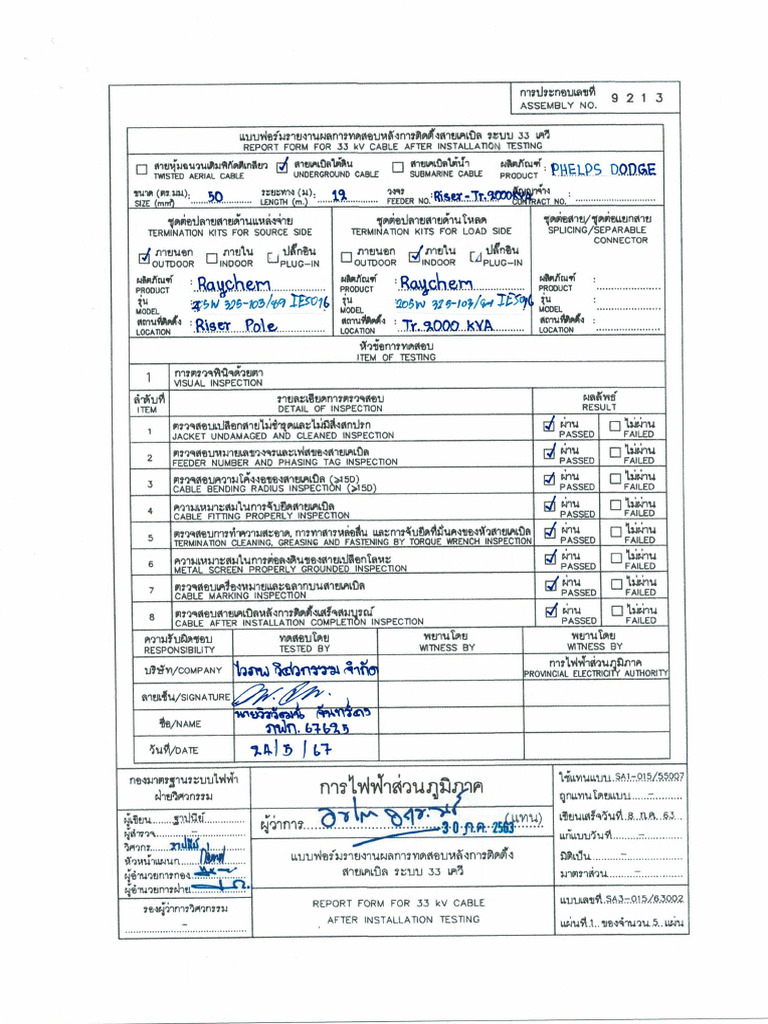 การประกอบเลขที่
ASSEMBLY NO. 9213
แบบฟอร์มรายงานผลการทดสอบหลังการติดตั้งสายเคเบิล ระบบ 33 เควี
REPORT FORM FOR 33 kV CABLE AFTER INSTALLATION TESTING
สายหุ้มฉนวนเต็มพิกัดตีเกลียว
TWISTED AERIAL CABLE
สายเคเบิลใต้ดิน
UNDERGROUND CABLE
สายเคเบิลใต้น้ำ
SUBMARINE CABLE
ผลิตภัณฑ์ : PHELPS DODGE
PRODUCT
ขนาด (ตร.มม): 50
SIZE (mm²)
ระยะทาง (ม): 12
LENGTH (m.)
วงจร
FEEDER NO. Riser-Tr.2000KVA
สัญญาจ้าง
CONTRACT NO. :
ชุดต่อปลายสายด้านแหล่งจ่าย
TERMINATION KITS FOR SOURCE SIDE
ภายนอก ภายใน ปลั๊กอิน
OUTDOOR INDOOR PLUG-IN
ผลิตภัณฑ์ : Raychem
PRODUCT
รุ่น
MODEL
สถานที่ติดตั้ง : Riser Pole
LOCATION
ชุดต่อปลายสายด้านโหลด
TERMINATION KITS FOR LOAD SIDE
ภายนอก ภายใน ปลั๊กอิน
OUTDOOR INDOOR PLUG-IN
ผลิตภัณฑ์ : Raychem
PRODUCT
รุ่น
MODEL
สถานที่ติดตั้ง : Tr.2000 KVA
LOCATION
ชุดต่อสาย/ชุดต่อแยกสาย
SPLICING/SEPARABLE
CONNECTOR
ผลิตภัณฑ์ :
PRODUCT
รุ่น :
MODEL
สถานที่ติดตั้ง :
LOCATION
หัวข้อการทดสอบ
ITEM OF TESTING
1 การตรวจพินิจด้วยตา
VISUAL INSPECTION
ลำดับที่ รายละเอียดการตรวจสอบ ผลลัพธ์
ITEM DETAIL OF INSPECTION RESULT
1 ตรวจสอบเปลือกสายไม่ชำรุดและไม่มีสิ่งสกปรก ผ่าน ไม่ผ่าน
JACKET UNDAMAGED AND CLEANED INSPECTION PASSED FAILED
2 ตรวจสอบหมายเลขวงจรและเฟสของสายเคเบิล ผ่าน ไม่ผ่าน
FEEDER NUMBER AND PHASING TAG INSPECTION PASSED FAILED
3 ตรวจสอบความโค้งงอของสายเคเบิล (≥15D) ผ่าน ไม่ผ่าน
CABLE BENDING RADIUS INSPECTION (≥15D) PASSED FAILED
4 ความเหมาะสมในการจับยึดสายเคเบิล ผ่าน ไม่ผ่าน
CABLE FITTING PROPERLY INSPECTION PASSED FAILED
5 ตรวจสอบการทำความสะอาด, การทาสารหล่อลื่น และการจับยึดที่มั่นคงของหัวสายเคเบิล ผ่าน ไม่ผ่าน
TERMINATION CLEANING, GREASING AND FASTENING BY TORQUE WRENCH INSPECTION PASSED FAILED
6 ความเหมาะสมในการต่อลงดินของสายเปลือกโลหะ ผ่าน ไม่ผ่าน
METAL SCREEN PROPERLY GROUNDED INSPECTION PASSED FAILED
7 ตรวจสอบเครื่องหมายและฉลากบนสายเคเบิล ผ่าน ไม่ผ่าน
CABLE MARKING INSPECTION PASSED FAILED
8 ตรวจสอบสายเคเบิลหลังการติดตั้งเสร็จสมบูรณ์ ผ่าน ไม่ผ่าน
CABLE AFTER INSTALLATION COMPLETION INSPECTION PASSED FAILED
ความรับผิดชอบ ทดสอบโดย พยานโดย พยานโดย
RESPONSIBILITY TESTED BY WITNESS BY WITNESS BY
บริษัท/COMPANY วิศวกรรม จำกัด การไฟฟ้าส่วนภูมิภาค
PROVINCIAL ELECTRICITY AUTHORITY
ลายเซ็น/SIGNATURE
ชื่อ/NAME
ภฟก. 67625
วันที่/DATE 24/5/67
กองมาตรฐานระบบไฟฟ้า
ฝ่ายวิศวกรรม
ผู้เขียน ฐาปนีย์
ผู้สำรวจ -
วิศวกร
หัวหน้าแผนก
ผู้อำนวยการกอง
ผู้อำนวยการฝ่าย
รองผู้ว่าการวิศวกรรม
-
การไฟฟ้าส่วนภูมิภาค
ผู้ว่าการ (แทน)
30 ก.ค. 2563
แบบฟอร์มรายงานผลการทดสอบหลังการติดตั้ง
สายเคเบิล ระบบ 33 เควี
REPORT FORM FOR 33 kV CABLE
AFTER INSTALLATION TESTING
ใช้แทนแบบ SA1-015/55007
ถูกแทนโดยแบบ -
เขียนเสร็จวันที่ 8 ก.ค. 63
แก้แบบวันที่ -
มิติเป็น -
มาตราส่วน -
แบบเลขที่ SA3-015/63002
แผ่นที่ 1 ของจำนวน 5 แผ่น